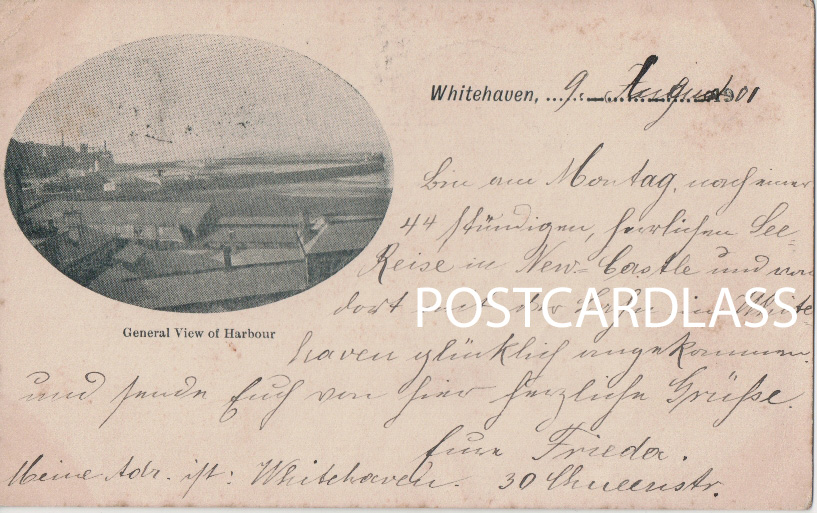 Whitehaven, 9. August 1901
Bin am Montag, nach einer
44 stündigen, herrlichen See=
Reise in New=Castle und von
dort mit der Bahn in White=
POSTCARDLASS
General View of Harbour
haven glücklich angekommen.
und sende Euch von hier herzliche Grüße.
Eure Frieda.
Meine Adr. ist: Whitehaven. 30 Queenstr.